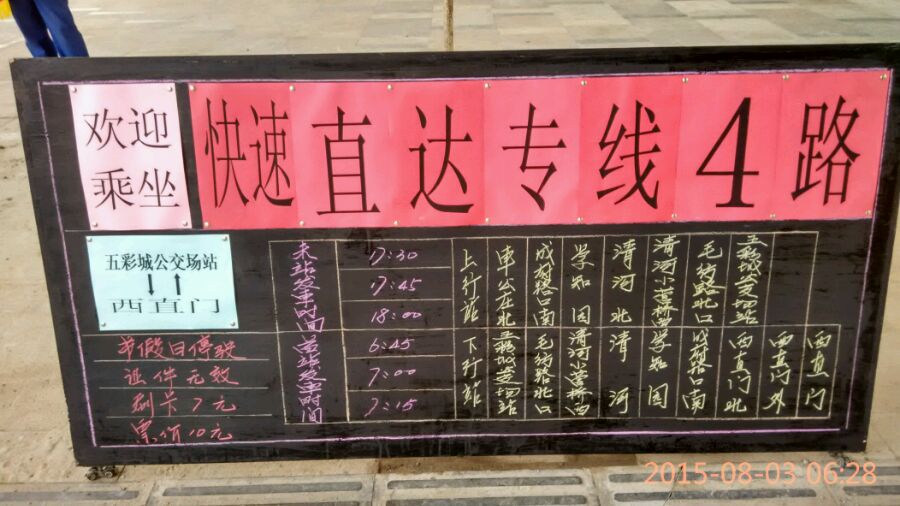 欢迎
乘坐
快速直达专线4路
五彩城公交场站
↓↑
西直门
节假日停驶
证件无效
刷卡7元
票价10元
末站发车时间
17:30
17:45
18:00
首站发车时间
6:45
7:00
7:15
上行站
车公庄北
成府路口南
学知园
清河北
清河小营桥西
毛纺路北口
五彩城公交场站
下行站
五彩城公交场站
毛纺路北口
清河小营桥西
清河
学知园
成府路口南
西直门北
西直门外
西直门
2015-08-03 06:28